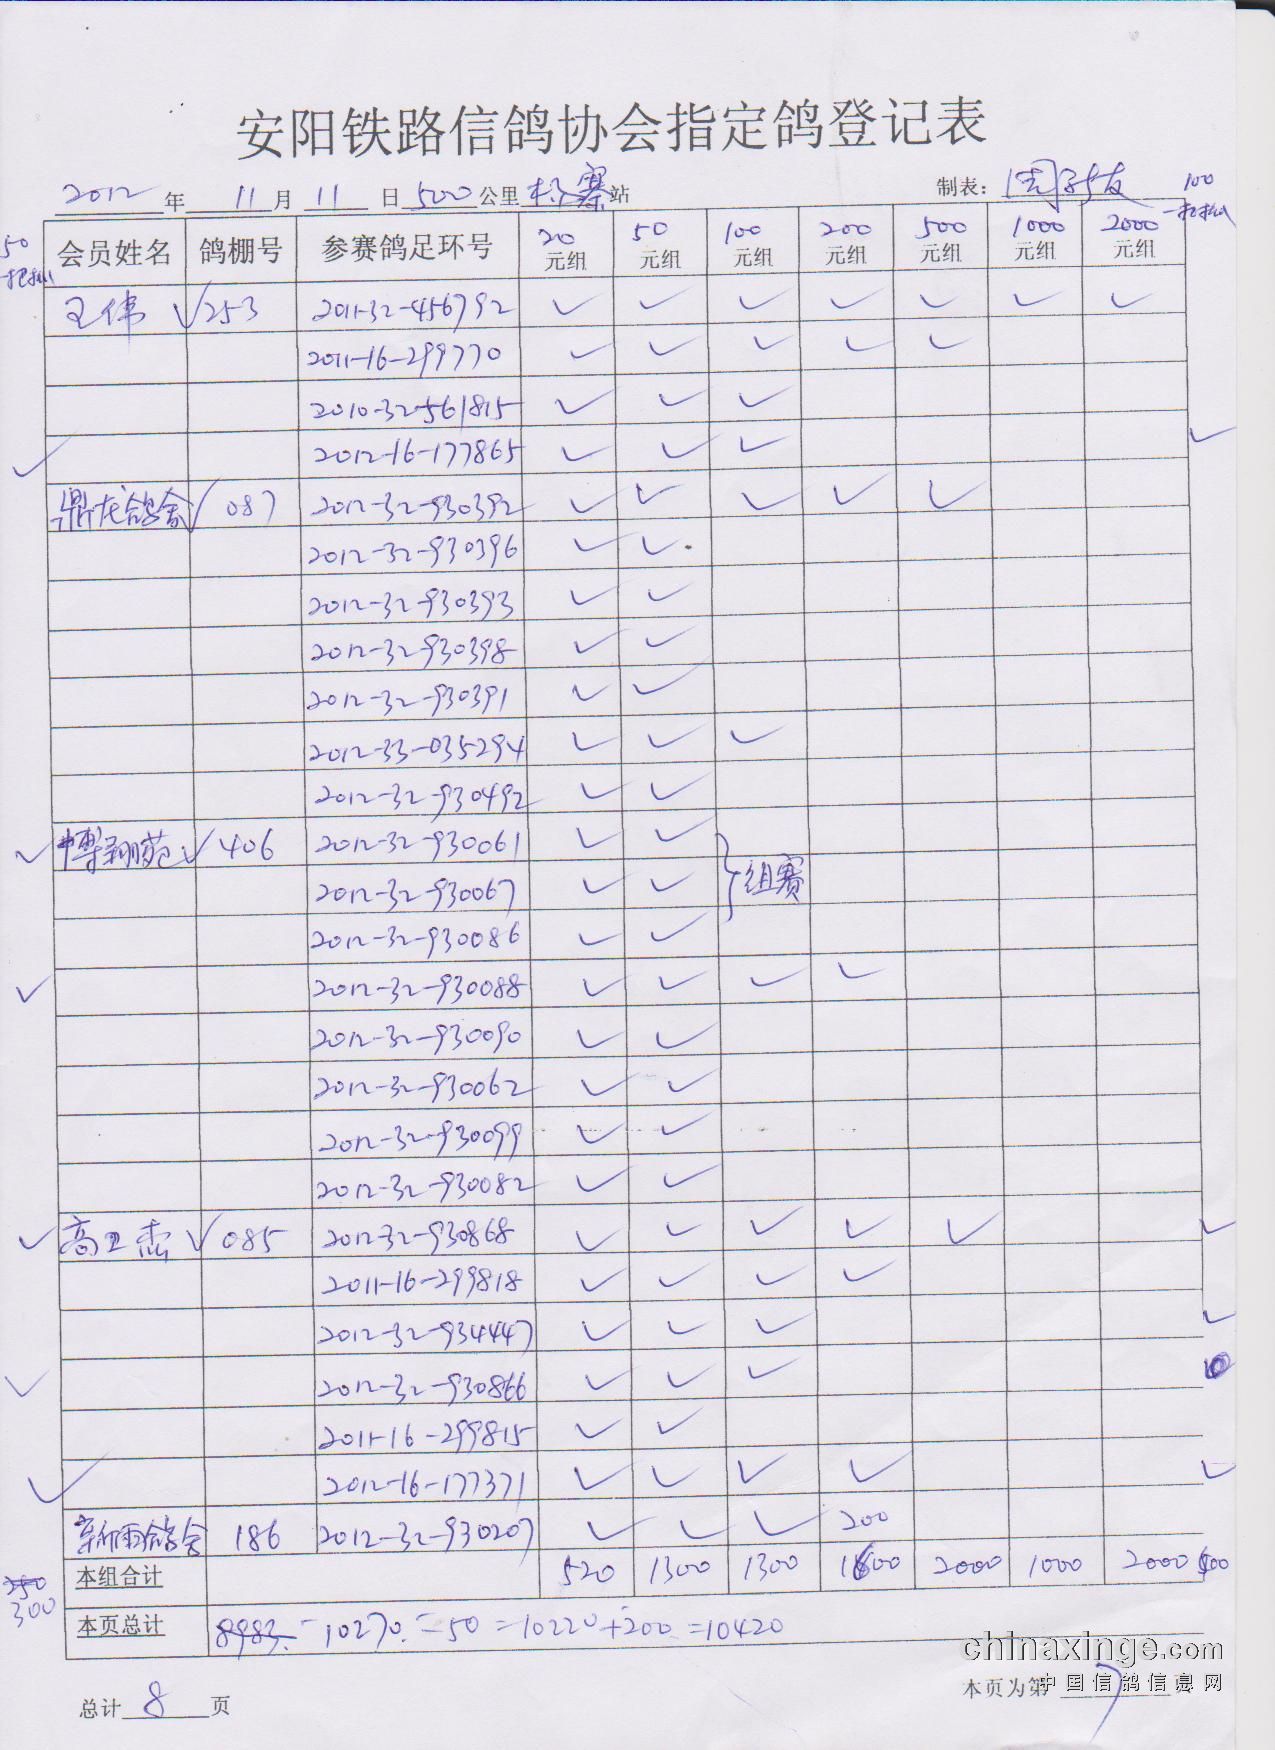 安阳铁路信鸽协会指定鸽登记表
2012年 11月 11日 500公里 杨寨站 制表:
会员姓名 鸽棚号 参赛鸽足环号 20元组 50元组 100元组 200元组 500元组 1000元组 2000元组
100
50
王伟 √ 253 2011-32-456792 ✓ ✓ ✓ ✓ ✓ ✓ ✓
2011-16-299770 ✓ ✓ ✓ ✓ ✓
2010-32-561815 ✓ ✓ ✓
✓ 2012-16-177865 ✓ ✓ ✓ ✓
鼎龙鸽舍 √ 087 2012-32-930392 ✓ ✓ ✓ ✓ ✓
2012-32-930396 ✓ ✓
2012-32-930393 ✓ ✓
2012-32-930398 ✓ ✓
2012-32-930391 ✓ ✓
2012-33-035294 ✓ ✓ ✓
2012-32-930492 ✓ ✓
✓ 博翔苑 √ 406 2012-32-930061 ✓ ✓
2012-32-930067 ✓ ✓ }组赛
2012-32-930086 ✓ ✓
✓ 2012-32-930088 ✓ ✓ ✓ ✓
2012-32-930090 ✓ ✓
2012-32-930062 ✓ ✓
2012-32-930099 ✓ ✓
2012-32-930082 ✓ ✓
✓ 高卫杰 √ 085 2012-32-930868 ✓ ✓ ✓ ✓ ✓ ✓
2011-16-299818 ✓ ✓ ✓ ✓
2012-32-934447 ✓ ✓ ✓ ✓
✓ 2012-32-930866 ✓ ✓ ✓
2011-16-299815 ✓ ✓
✓ 2012-16-177371 ✓ ✓ ✓ ✓ ✓
新雨鸽舍 186 2012-32-930207 ✓ ✓ ✓ 200
250 本组合计 520 1300 1300 1600 2000 1000 2000 500
300
本页总计 8983. - 10270. - 50 = 10220 + 200 = 10420
chinaxinge.com
中国信鸽信息网
总计 8 页 本页为第 7